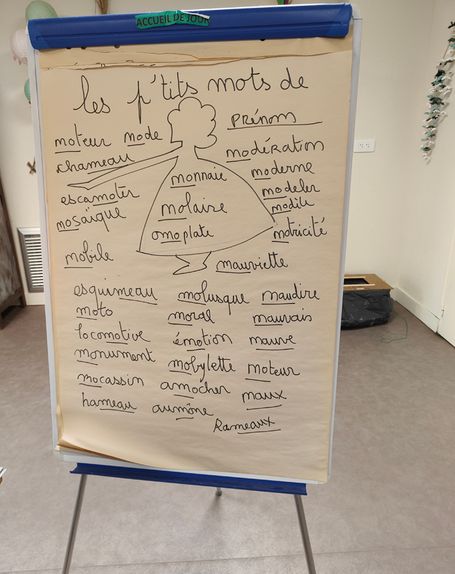 ACCUEIL DE JOUR
les p'tits mots de
PRÉNOM
moteur mode
chameau
modération
moderne
escamoter
monnaie
modeler
mosaïque
molaire
omoplate
motricité
mobile
mauviette
esquimeau molusque maudire
moto moral mauvais
locomotive émotion mauve
monument mobylette moteur
mocassin amocher maux
hameau aumône
Rameaux